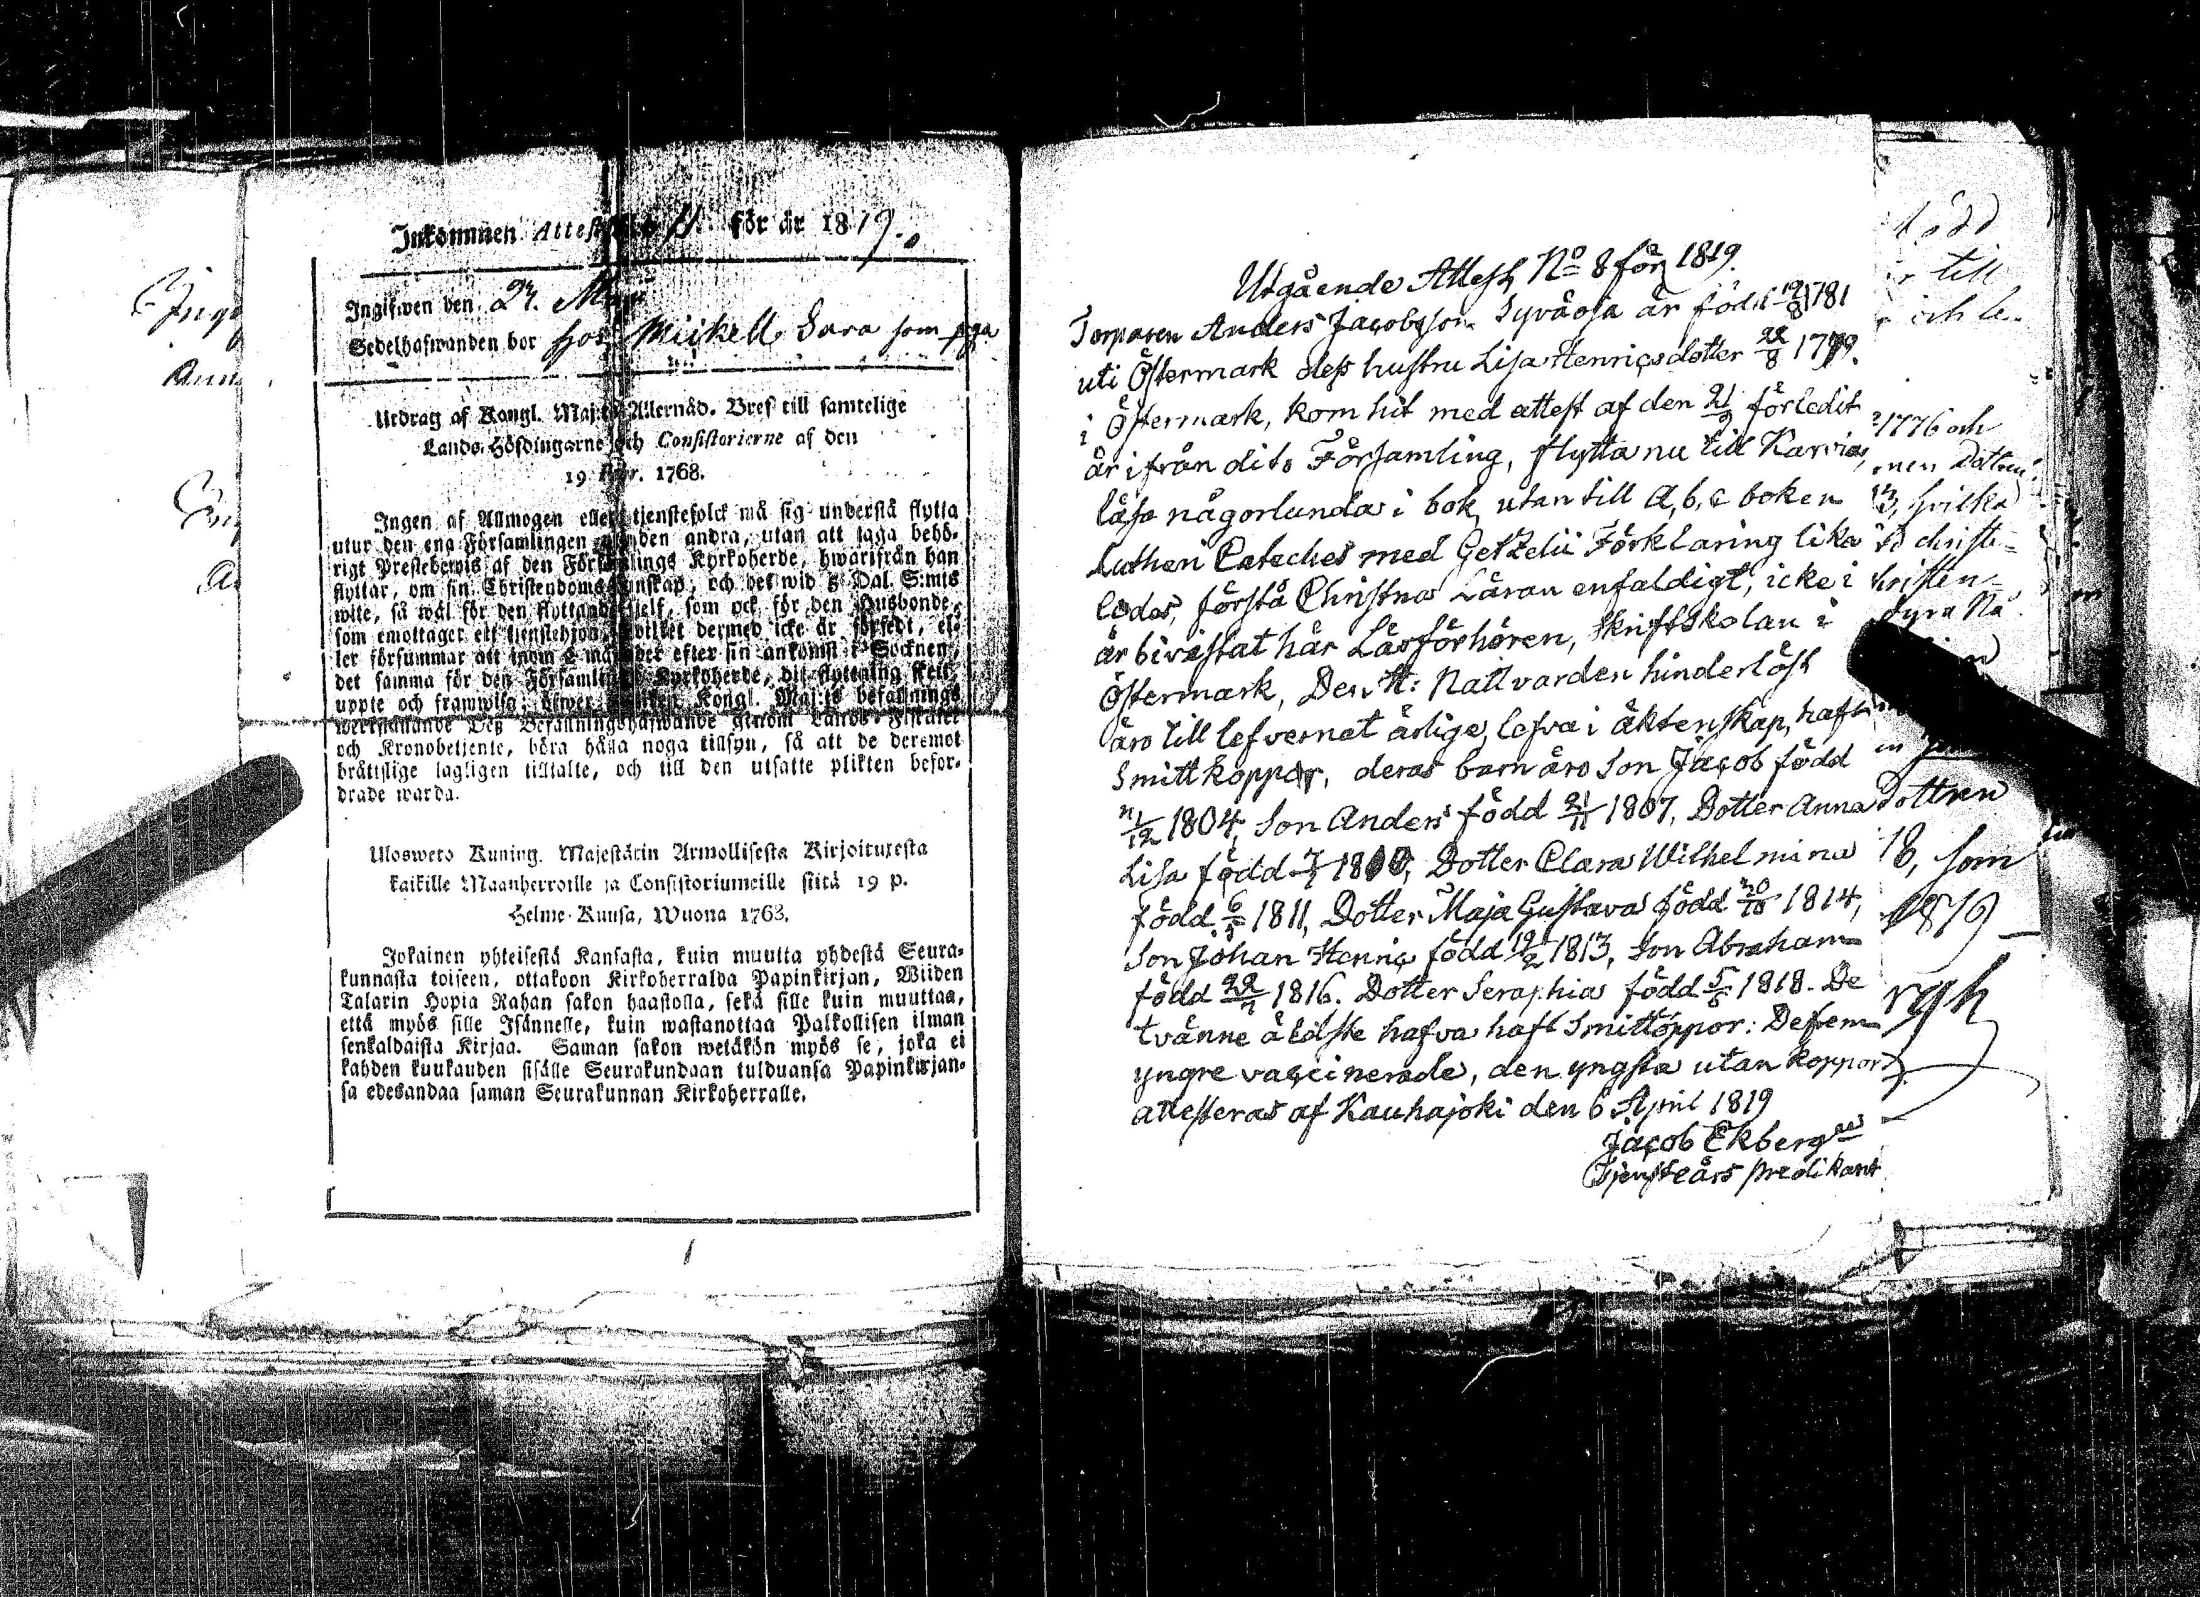 Inkommen Attest för år 1819.
Ingifwen den 24. Maji
Sedelhafwanden bor hos Mickell Sara som
Utdrag af Kongl. Maj:ts Allernåd. Bref till samtelige
Lands-Höfdingarne och Consistorierne af den
19 1768.
Ingen af Allmogen eller tjenstefolck må sig understå flytta
utur den ena Församlingen den andra, utan att taga behö-
rigt Prestebewis af den Församlings Kyrkoherde, hwarifrån han
flyttar, om sin Christendoms kunskap, och det wid 5 Dal. S:mts
wite, så wäl för den flyttande sjelf, som ock för den Husbonde,
som emottager ett tjenstehjon, hwilket dermed icke är försedt, el-
ler försummar att inom 2 månader efter sin ankomst i Socknen,
det samma för den Församlings Kyrkoherde, dit flyttning skett,
uppte och framwisa; öfwer hwilken Kongl. Maj:ts befallnings
werkställande Deß Befallningshafwande genom Lands-Fiskaler
och Kronobetjente, böra hålla noga tillsyn, så att de deremot
bråttslige lagligen tilltalte, och till den utsatte plikten befor-
drade warda.
Ulosweto Kuning. Majestätin Armollisesta Kirjoituxesta
kaikille Maanherroille ja Consistoriumeille siitä 19 p.
Helme-Kuusa, Wuona 1763.
Jokainen yhteisestä Kansasta, kuin muutta yhdestä Seura-
kunnasta toiseen, ottakoon Kirkoherralda Papinkirjan, Wiiden
Talarin Hopia Rahan sakon haastolla, sekä sille kuin muuttaa,
että myös sille Isännelle, kuin wastanottaa Palkollisen ilman
senkaldaista Kirjaa. Saman sakon wetäkön myös se, joka ei
kahden kuukauden sisälle Seurakundaan tulduansa Papinkirjan-
sa edesandaa saman Seurakunnan Kirkoherralle.
Utgående Attest No 8 för 1819.
Torparen Anders Jacobsson Syväoja är född 19/8 1781
uti Östermark dess hustru Lisa Henricsdotter 22/8 1779.
i Östermark, kom hit med attest af den 21/9 förledit
år ifrån dito Församling, flytta nu till Karvia,
läsa någorlunda i bok, utan till A, b, c boken
Lutheri Cateches med Getzelii Förklaring lika
ledes, förstå Christna Läran enfaldigt, icke i
år bivistat här Läsförhören, Skriftskolan i
Östermark, Den H: Nattvarden hinderlöst
äro till lefvernet ärlige, lefva i äktenskap, haft
Smittkoppor, deras barn äro Son Jacob född
11/12 1804, Son Anders född 21/11 1807, Dotter Anna
Lisa född 7/1 1800, Dotter Clara Wilhelmina
född 6/5 1811, Dotter Maja Gustava född 20/10 1814,
Son Johan Henric född 19/2 1813, Son Abraham
född 22/7 1816. Dotter Seraphia född 5/6 1818. De
tvänne äldste hafva haft Smittoppor: De fem
yngre vaccinerade, den yngsta utan koppor
attesteras af Kauhajoki den 6 April 1819
Jacob Ekberg
Tjensteårs predikant
född
till
och le
1776 och
Dottren
hvilka
christe-
christen-
fyra
Dottren
18, som